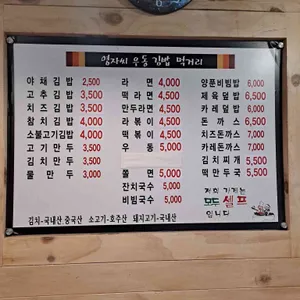 영자씨 우동 김밥 먹거리
야채김밥 2,500
고추김밥 3,500
치즈김밥 3,500
참치김밥 4,000
소불고기김밥 4,000
고기만두 3,500
김치만두 3,500
물만두 3,500
라면 4,000
떡라면 4,500
만두라면 4,500
라볶이 4,500
떡볶이 4,500
우동 5,000
쫄면 5,000
잔치국수 5,000
비빔국수 5,000
양푼비빔밥 6,000
제육덮밥 6,500
카레덮밥 6,000
돈까스 6,500
치즈돈까스 7,000
카레돈까스 7,000
김치찌개 5,500
떡만두국 5,500
저희 가게는
모두 셀프
입니다
김치-국내산,중국산 소고기-호주산 돼지고기-국내산